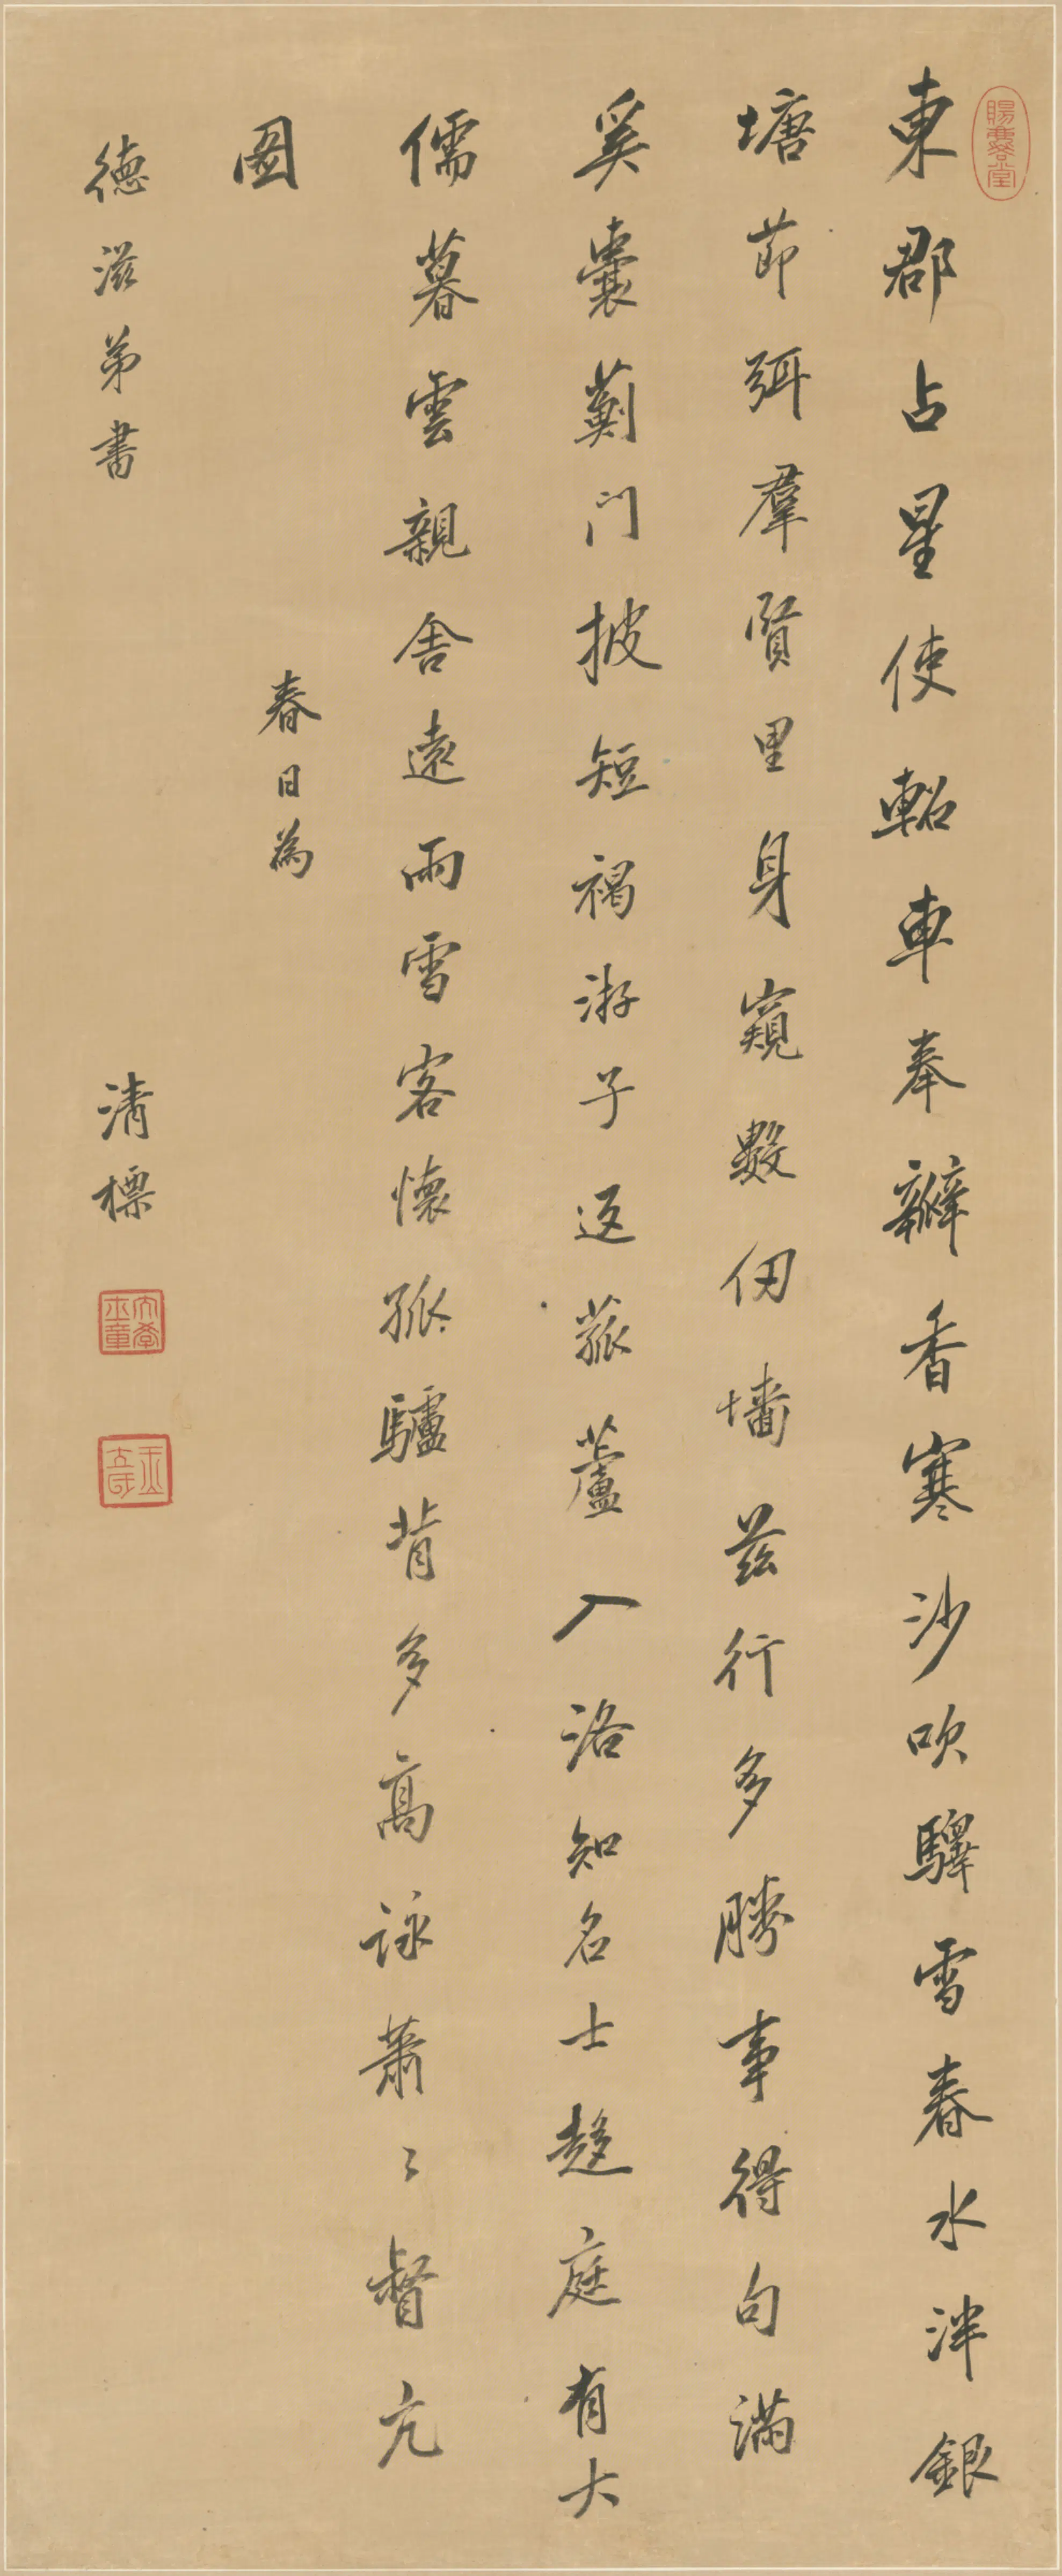 東郡占星使軺車奉瓣香寒沙吹驛雪春水泮銀
塘節弭羣賢里身窺數仞墻茲行多勝事得句滿
奚囊薊门披短褐游子返菰蘆入洛知名士趍庭有大
儒暮雲親舍遠雨雪客懷孤驢背多高詠蕭〻督亢
圖
春日為
德滋弟書
清標